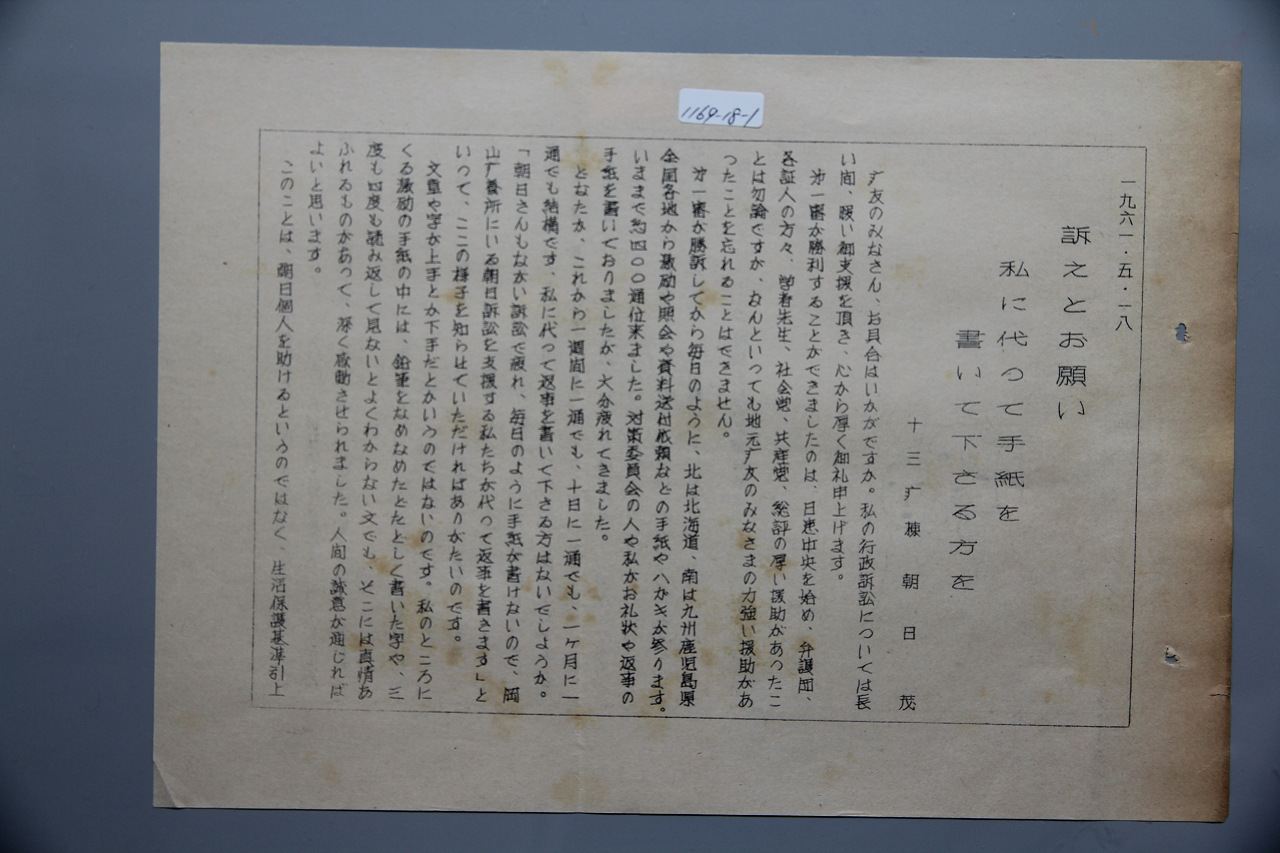 1169-18-1
一九六一・五・一八
訴えとお願い
私に代って手紙を
書いて下さる方を
十三疒棟 朝日 茂
疒友のみなさん、お具合はいかがですか。私の行政訴訟については長
い間、暖い御支援を頂き、心から厚く御礼申上げます。
第一審が勝利することができましたのは、日患中央を始め、弁護団、
各証人の方々、学者先生、社会党、共産党、総評の厚い援助があったこ
とは勿論ですが、なんといっても地元疒友のみなさまの力強い援助があ
ったことを忘れることはできません。
第一審が勝訴してから毎日のように、北は北海道、南は九州鹿児島県
全国各地から激励や照会や資料送付依頼などの手紙やハガキが参ります。
いままで約四〇〇通位来ました。対策委員会の人や私がお礼状や返事の
手紙を書いておりましたが、大分疲れてきました。
どなたか、これから一週間に一通でも、十日に一通でも、一ヶ月に一
通でも結構です、私に代って返事を書いて下さる方はないでしょうか。
「朝日さんもながい訴訟で疲れ、毎日のように手紙が書けないので、岡
山疒養所にいる朝日訴訟を支援する私たちが代って返事を書きます」と
いって、ここの様子を知らせていただければありがたいのです。
文章や字が上手とか下手だとかいうのではないのです。私のところに
くる激励の手紙の中には、鉛筆をなめなめたどたどしく書いた字や、三
度も四度も読み返して見ないとよくわからない文でも、そこには真情あ
ふれるものがあって、深く感動させられました。人間の誠意が通じれば
よいと思います。
このことは、朝日個人を助けるというのではなく、生活保護基準引上